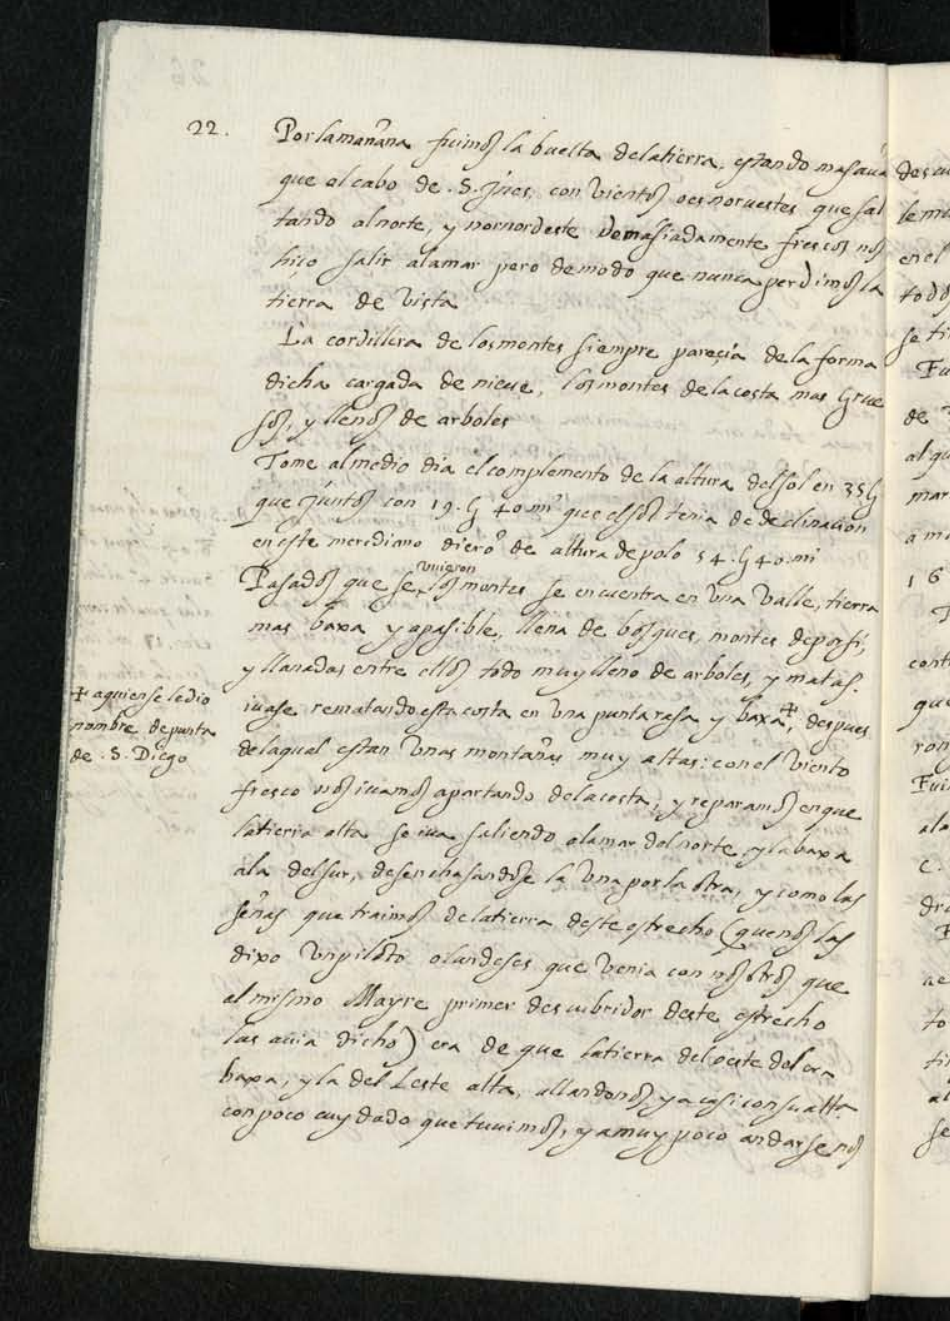 22.
Por la mañana fuimos la buelta de la tierra, estando mas aua
que el cabo de .S. Jnes, con vientos oesnoruestes que sal
tando al norte, y nornordeste demassiadamente frescos nos
hiço salir a la mar pero de modo que nunca perdimos la
tierra de vista
La cordillera de los montes siempre pareçia de la forma
dicha cargada de nieue, los montes de la costa mas grue
sos, y llenos de arboles
Tome al medio dia el complemento de la altura del sol en 35 g
que juntos con 19. g 40 mi que el sol tenia de declinacion
en este meridiano diero de altura de polo 54. g 40. mi
Pasados que se vuieron los montes se encuentra en vna valle, tierra
mas baxa y apasible, llena de bosques, montes de por si,
y llanadas entre ellos todo muy lleno de arboles, y matas.
iuase rematando esta costa en vna punta rasa y baxa +, despues
de la qual estan vnas montañas muy altas: con el viento
fresco nos iuamos apartando de la costa, y reparamos en que
la tierra alta se iua saliendo a la mar del norte, y la baxa
a la del sur, desenchasandose la vna por la otra, y como las
señas que traimos de la tierra deste estrecho (que nos las
dixo vn piloto olandeses que venia con nosotros que
al mismo Mayre primer descubridor deste estrecho
las auia dicho) era de que la tierra del oeste del era
baxa, y la del Leste alta, allandonos ya casi con su alta
con poco cuydado que tuuimos, y a muy poco andar se nos
+ aqui en se le dio
nombre de punta
de .S. Diego
descu
le mu
en el
todos
se ti
Fu
de
al gu
mar
a m
16
cont
que
ron
Fui
alo
c.
dra
ae
to
tir
al
se